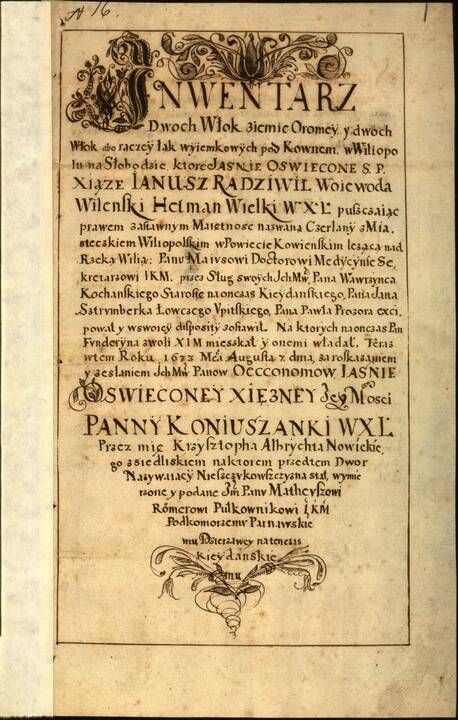 A 16.
1
INWENTARZ
Dwoch Włok ziemie Oromey y dwoch
Włok abo raczey łak wyiemkowych pod Kownem. w Wiliopo
lu na Słobodzie ktore JASNIE OSWIECONE S. P.
XIĄZE IANUSZ RADZIWIŁ Woiewoda
Wilenski Hetman Wielki WXŁ puszczaiąc
prawem zastawnym Maietnosc nazwana Czerlany z Mia,
steczkiem Wiliopolskim w Powiecie Kowienskim leząca nad
Rzeką Wilią; Panu Maiusowi Doctorowi Medycynie Se,
kretarzowi IKM. przez Sług swoych JchMw̃, Pana Wawrzynca
Kochanskiego Starostę na on czas Kieydanskiego, Pana Jana
Sztrumberka Łowczego Vpitskiego, Pana Pawła Prozora exci,
powal y w swoiey disposity zostawił. Na ktorych na on czas Pan
Funderyna z woli XIM mieszkał y onemi władał. Teraz
wtem Roku 1673 Mca Augusta 2 dnia, za roskazaniem
y zesłaniem JchMw̃ Panow OECCONOMOW IASNIE
OSWIECONEY XIĘZNEY Jey Mosci
PANNY KONIUSZANKI WXŁ
Przez mię Krzysztopha Albrychta Nowickie,
go z siedliskiem na ktorem przedtem Dwor
Nazywaiący Nieszczykowszczyzna stał, wymie
rzone y podane Jm̃ Panu Matheyszowi
Rómerowi Pułkownikowi IKM
Podkomorzemu Parnawskie
mu Dzierzawcy na tenczas
Kieydanskie
mu